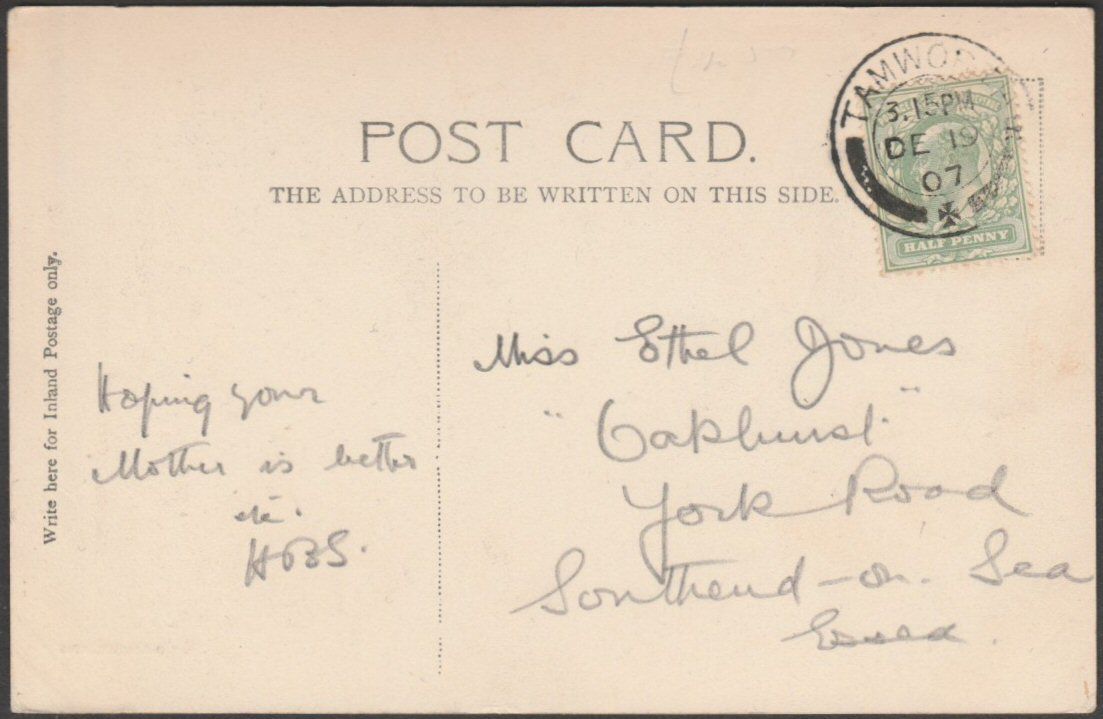 POST CARD.
THE ADDRESS TO BE WRITTEN ON THIS SIDE.
TAMWORTH
3.15PM
DE 19
07
HALF PENNY
Write here for Inland Postage only.
Hoping your
Mother is better
etc.
Miss Ethel Jones
"Oakhurst"
York Road
Southend-on-Sea
Essex.